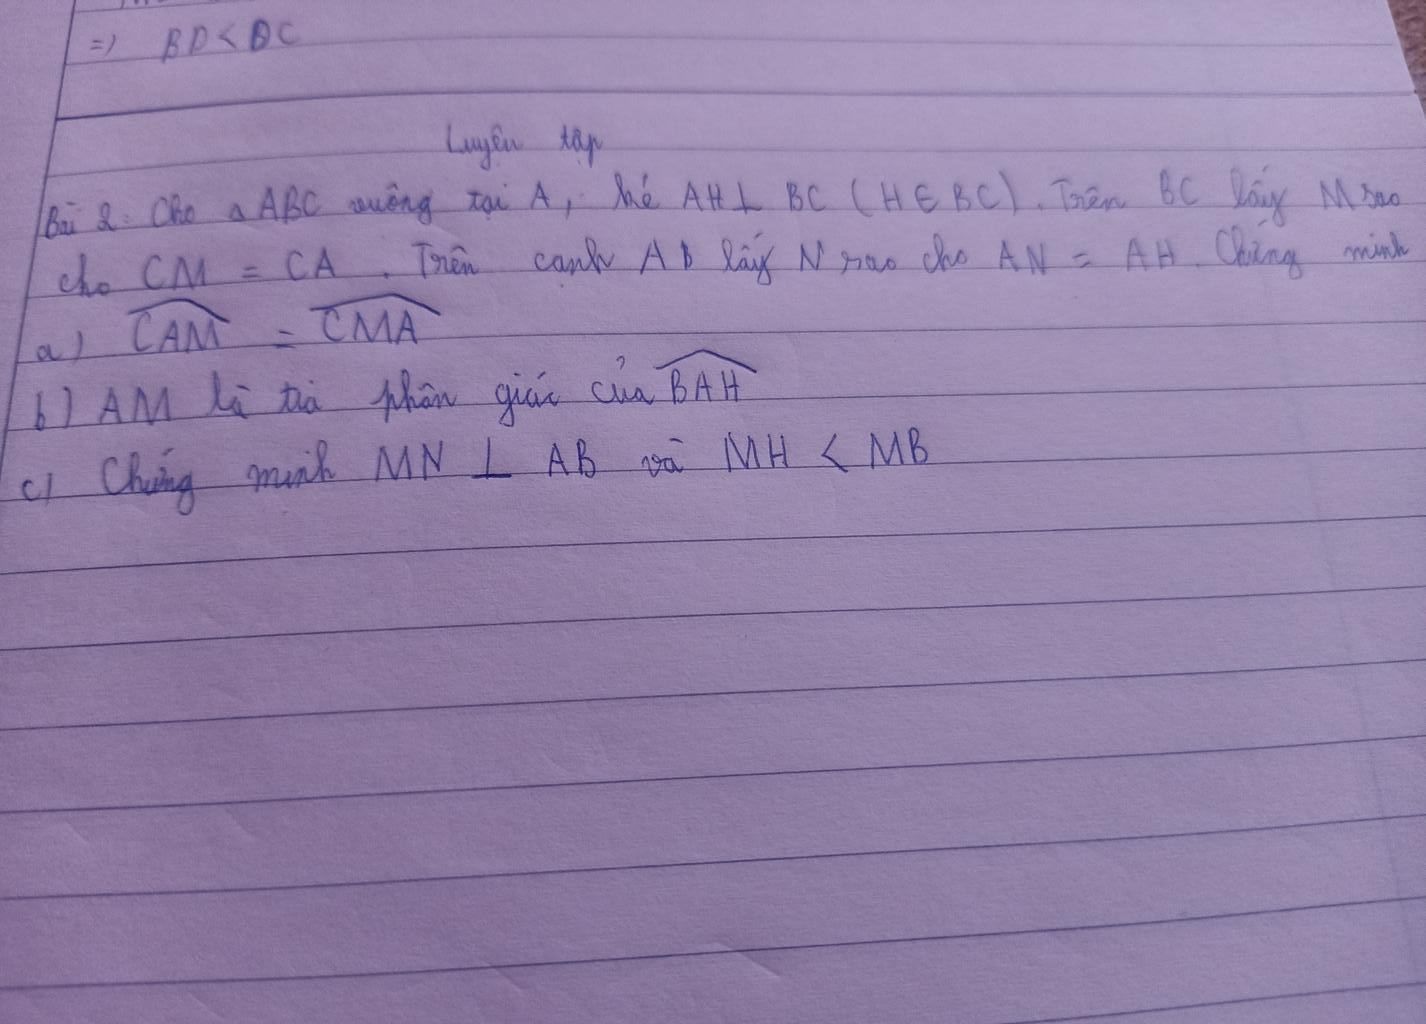 =) BD < DC
Luyện tập
Bài 2: Cho △ ABC vuông tại A, kẻ AH ⊥ BC (H ∈ BC). Trên BC lấy M sao
cho CM = CA. Trên cạnh AB lấy N sao cho AN = AH. Chứng minh
a) \widehat{CAM} = \widehat{CMA}
b) AM là tia phân giác của \widehat{BAH}
c) Chứng minh MN ⊥ AB và MH < MB